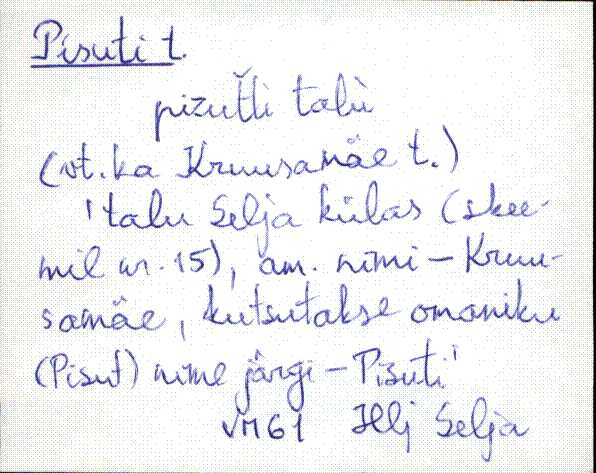 Pisuti t.
pizut̆t̆i talù
(vt. ka Kruusamäe t.)
'talu Selja külas (skee-
mil nr. 15), am. nimi - Kruu-
samäe, kutsutakse omaniku
(Pisut) nime järgi - Pisuti'
VM61 Hlj Selja